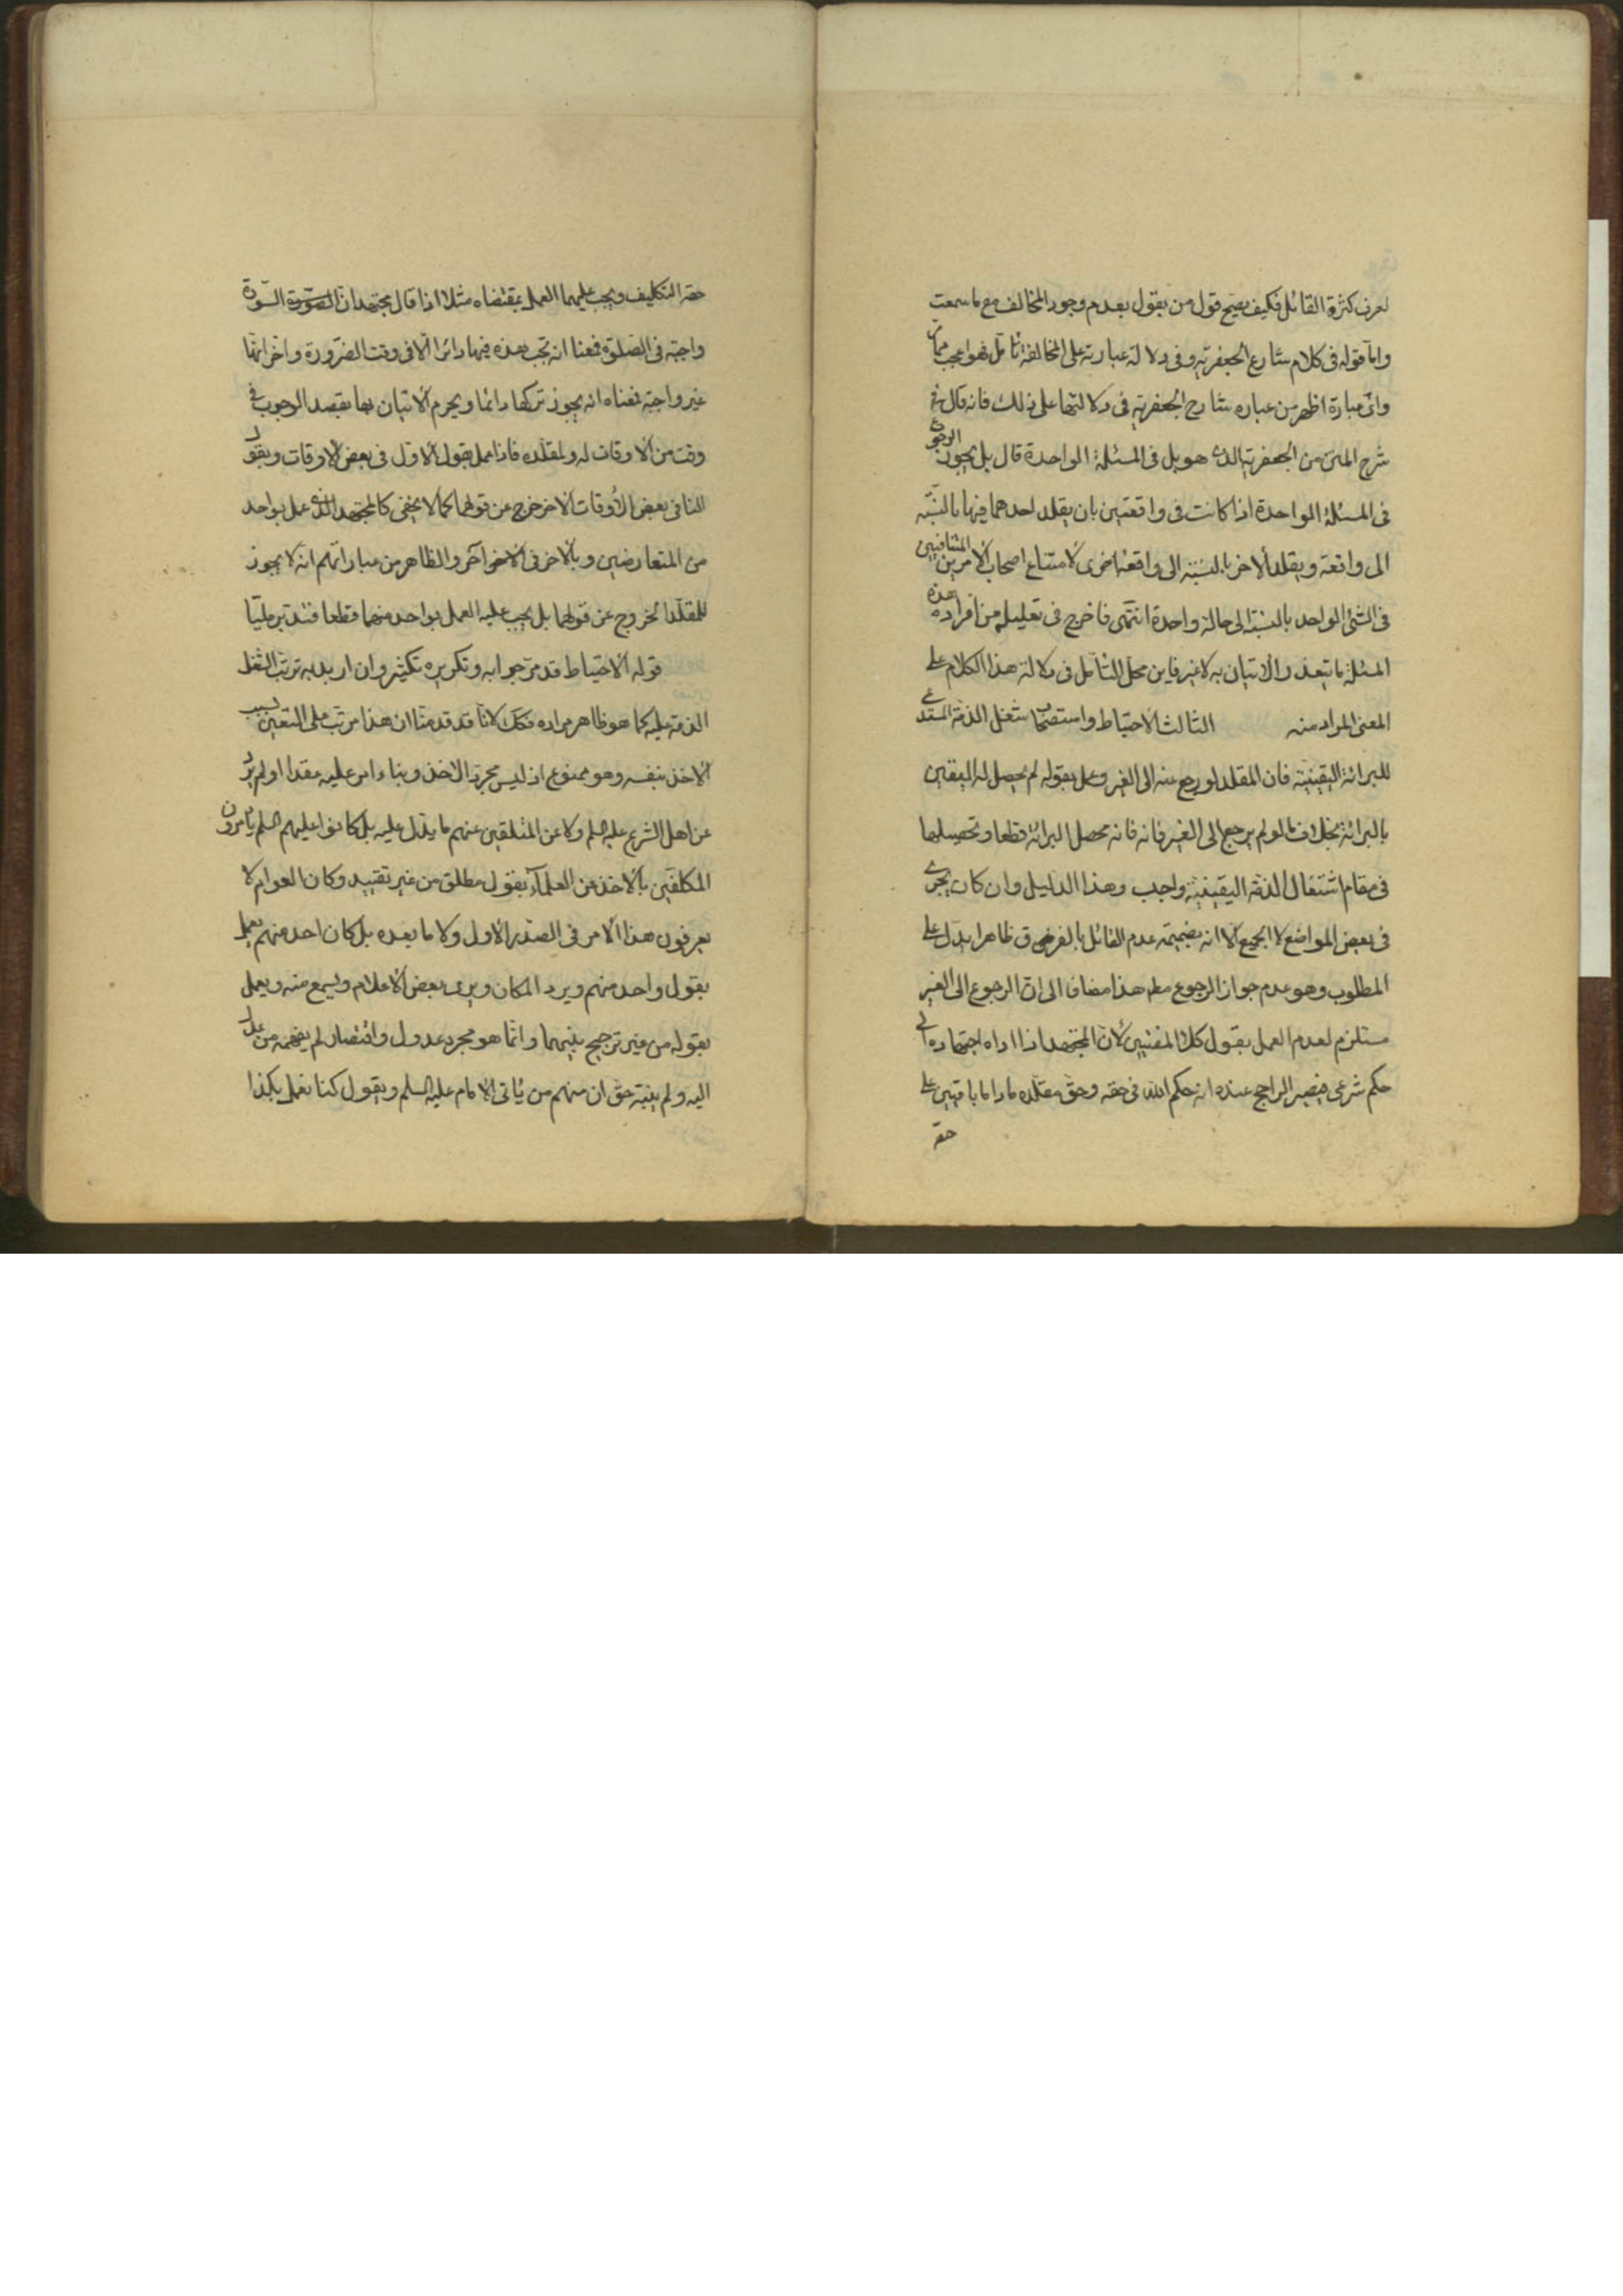 لعرف كثرة القائل فكيف يصح قول من يقول بعدم وجود المخالف مع ما سمعت
واما قوله في كلام شارع الجعفرية وفي دلالة عبارته على المخالفة تأمل فهو اعجب مما مر
واى عبارة اظهر من عباره شارح الجعفرية في دلالتها على ذلك فانه قال في
شرح المتن من الجعفرية الذى هو بل في المسئلة الواحدة قال بل يجوز الرجوع
في المسئلة الواحدة اذا كانت في واقعتين بان يقلد احدهما فيها بالنسبة
الى واقعة ويقلد الاخر بالنسبة الى واقعة اخرى لامتناع اصحاب الامرين المتنافيين
في الشئ الواحد بالنسبة الى حالة واحدة انتهى فاخرج في تعليله من افراد هذه
المسئلة ما يتعذر الاتيان به لا غير فاين محل التأمل في دلالة هذا الكلام على
المعنى المراد منه الثالث الاحتياط واستصحاب شغل الذمة المستدعى
للبرائة اليقينية فان المقلد لو رجع عنه الى الغير وعمل بقوله لم يحصل له اليقين
بالبرائة بخلاف ما لو لم يرجع الى الغير فانه فانه محصل البرائة قطعا وتحصيلها
في مقام اشتغال الذمة اليقينية واجب وهذا الدليل وان كان يجرى
في بعض المواضع لا الجميع الا انه بضميمة عدم القائل بالفرق ظاهرا يدل على
المطلوب وهو عدم جواز الرجوع مط هذا مضافا الى ان الرجوع الى الغير
مستلزم لعدم العمل بقول كلا المفتيين لان المجتهد اذا اداه اجتهاده الى
حكم شرعى فيصير الراجح عنده انه حكم الله في حقه وحق مقلده ما داما باقيين على
حقه
حقه التكليف ويجب عليهما العمل بمقتضاه مثلا اذا قال مجتهد ان الصورة السورة
واجبة في الصلوة فمعناه انه تجب هذه فيها دائرا الا في وقت الضرورة واخر انها
غير واجبة فمعناه انه يجوز تركها دائما ويحرم الاتيان بها بقصد الوجوب في
وقت من الاوقات له ولمقلده فاذا عمل بقول الاول في بعض الاوقات وبقول
الثانى في بعض الاوقات الاخر خرج عن قولهما كما لا يخفى كالمجتهد الذى عمل بواحد
من المتعارضين وبالاخر في الاخر والظاهر من عباراتهم انه لا يجوز
للمقلد الخروج عن قولهما بل يجب عليه العمل بواحد منهما قطعا فتدبر مليا
قوله الاحتياط قد مر جوابه وتكريره تكثير وان اريد به ترتب الشغل
الذمة عليه كما هو ظاهر مراده فكك لانا قد قدمنا ان هذا مرتب على التعين بسبب
الاخذ بنفسه وهو ممنوع اذ ليس مجرد الاخذ وبناء امر عليه مقدا او لم يرد
عن اهل الشرع عليهم السلم ولا عن المتلقين عنهم ما يدل عليه بل كانوا عليهم السلم يأمرون
المكلفين بالاخذ من العلماء بقول مطلق من غير تقييد وكان العوام لا
يعرفون هذا الامر في الصدر الاول ولا ما بعده بل كان احد منهم يعمل
بقول واحد منهم ويرد المكان ويرى بعض الاعلام ويسمع منه ويعمل
بقوله من غير ترجيح بينهما وانما هو مجرد عدول واقتصار لم يفهمه من عدل
اليه ولم ينبه حتى ان منهم من يأتى الامام عليه السلم ويقول كنا نعمل بكذا